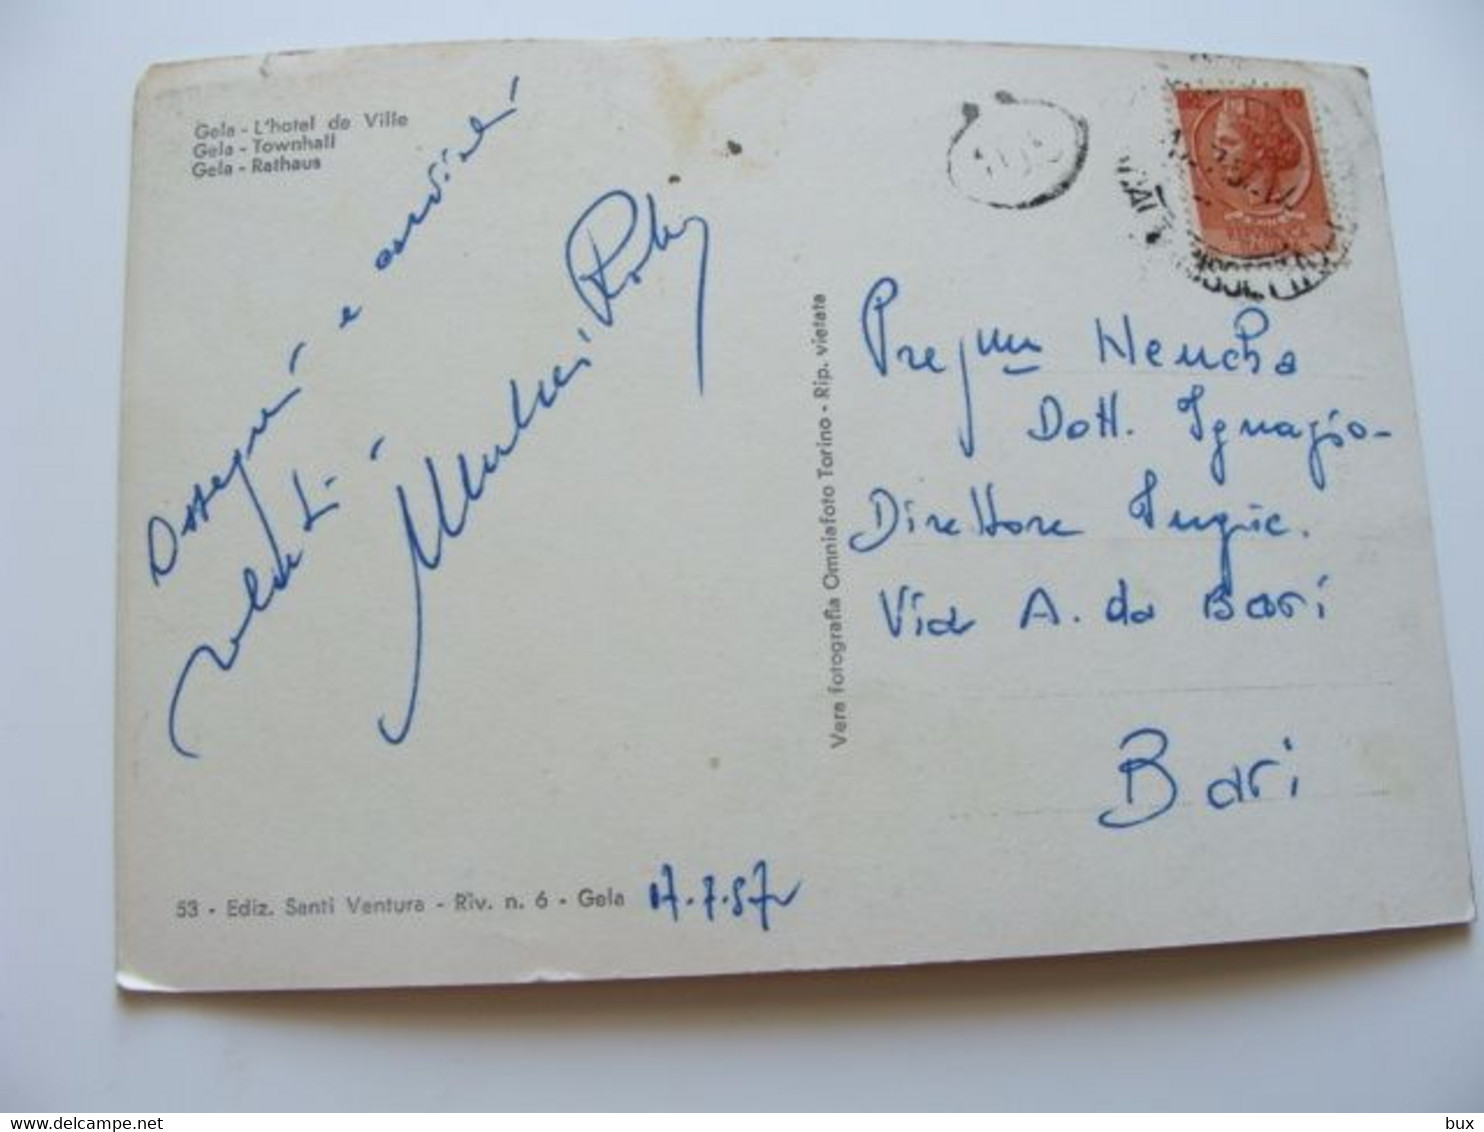 Gela - L'hotel de Ville
Gela - Townhall
Gela - Rathaus
Ossequi e cordiali
saluti
53 - Ediz. Santi Ventura - Riv. n. 6 - Gela
17.7.57
Vera fotografia Omniafoto Torino - Rip. vietata
10
Dott. Ignazio -
Direttore
Via A. da Bari
Bari
bux